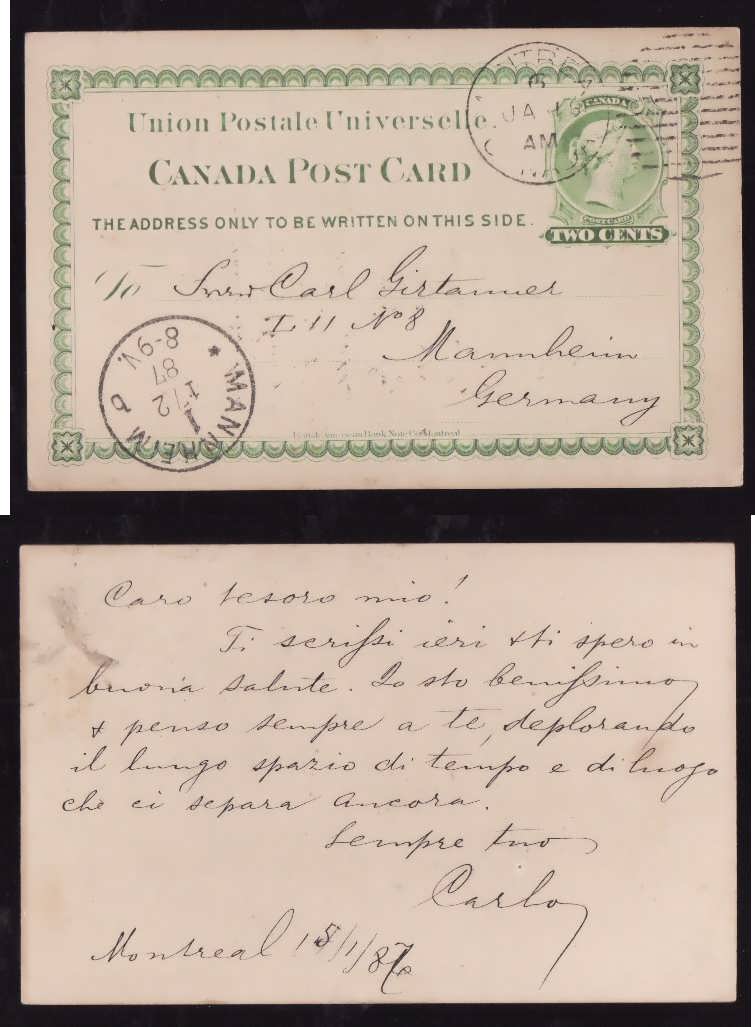 Union Postale Universelle.
CANADA POST CARD
THE ADDRESS ONLY TO BE WRITTEN ON THIS SIDE.
CANADA
TWO CENTS
AM
To Carl Girtanner
L 11 No 8
Mannheim
Germany
MANNHEIM
1/2
87
8-9V.
Caro tesoro mio!
Ti scrissi ieri & ti spero in
buona salute. Io sto benissimo
& penso sempre a te, deplorando
il lungo spazio di tempo e di luogo
che ci separa ancora.
Sempre tuo
Carlo
Montreal 15/1/87